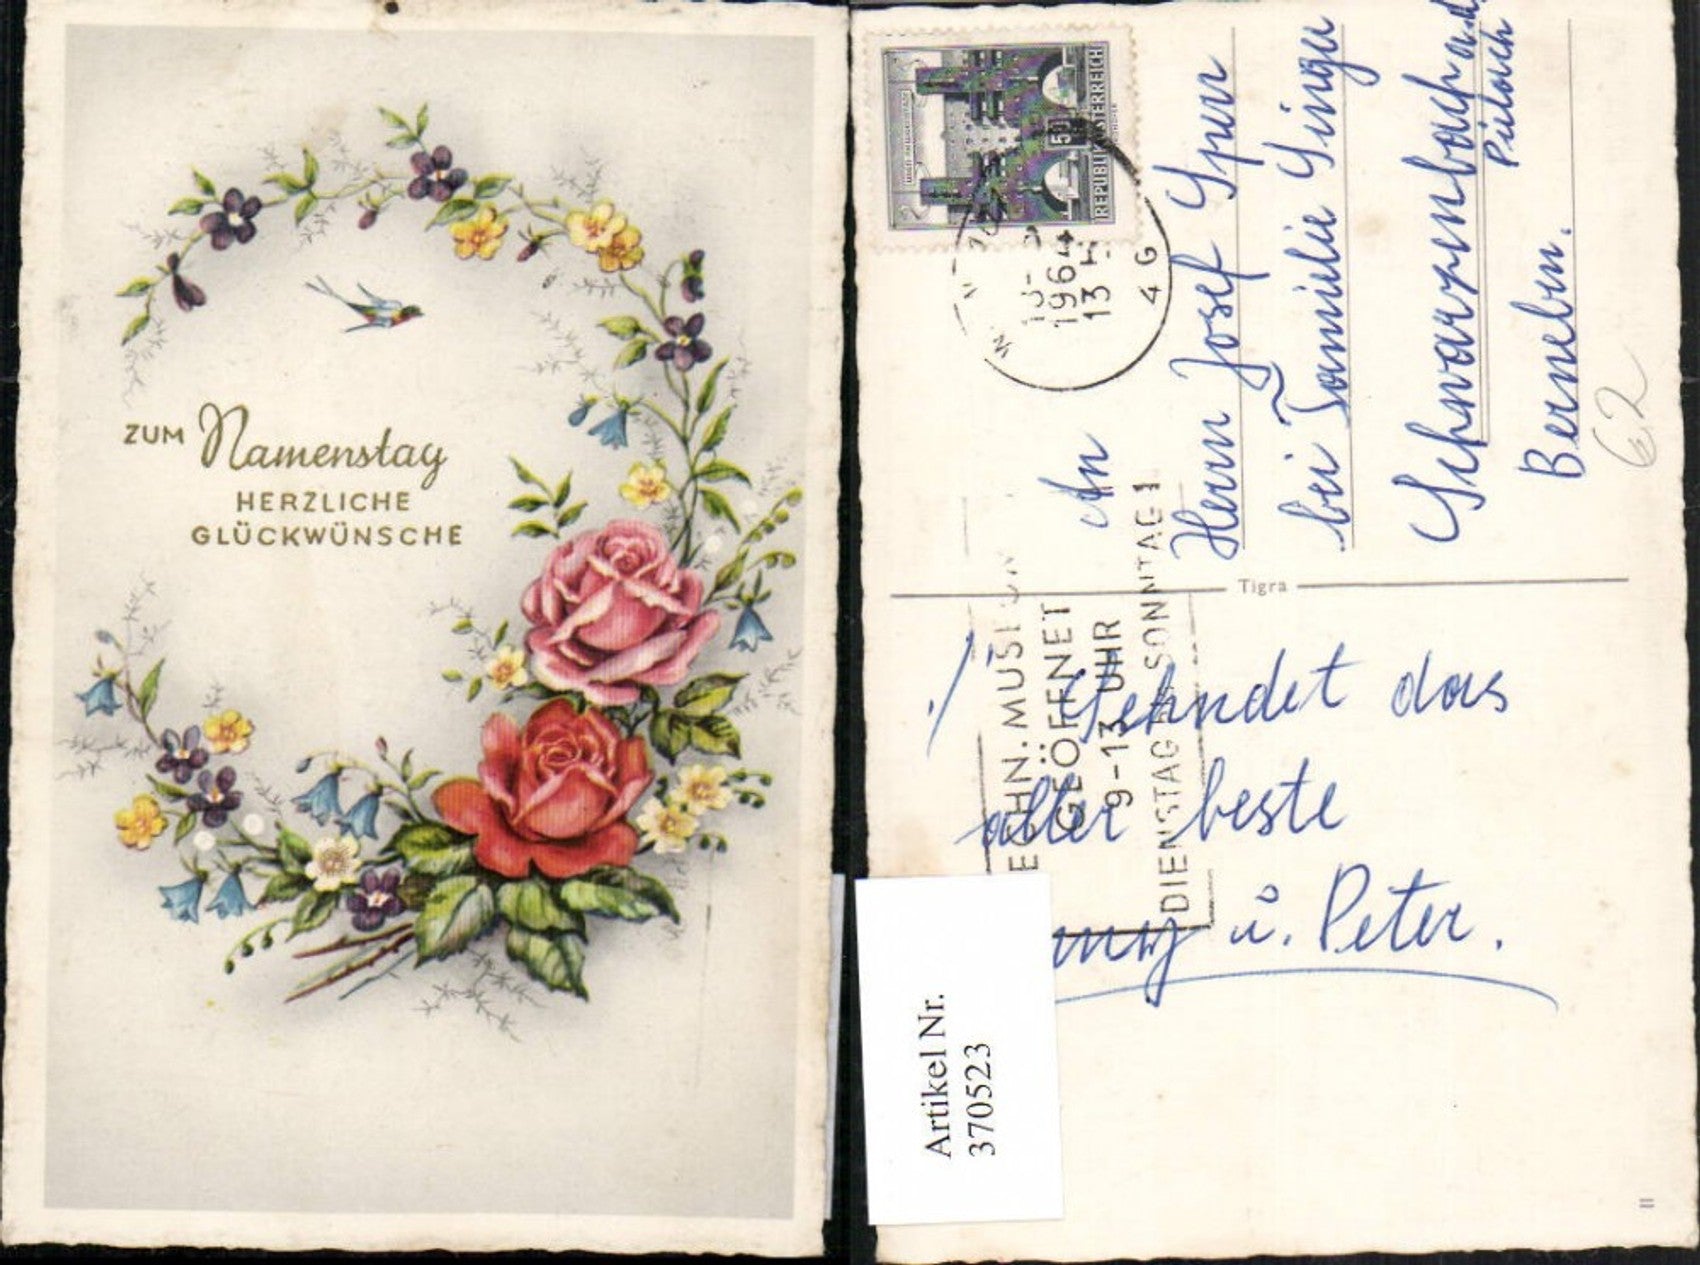 ZUM Namenstag
HERZLICHE
GLÜCKWÜNSCHE
REPUBLIK ÖSTERREICH
1964
13
4 G
An
Herrn Josef
bei Familie Singer
Schwarzenbach a.d.
Pielach
62
Tigra
TECHN. MUSEUM
GEÖFFNET
9-13 UHR
DIENSTAG SONNTAG
Sendet das
aller beste
u. Peter.
Artikel Nr.
370523
II